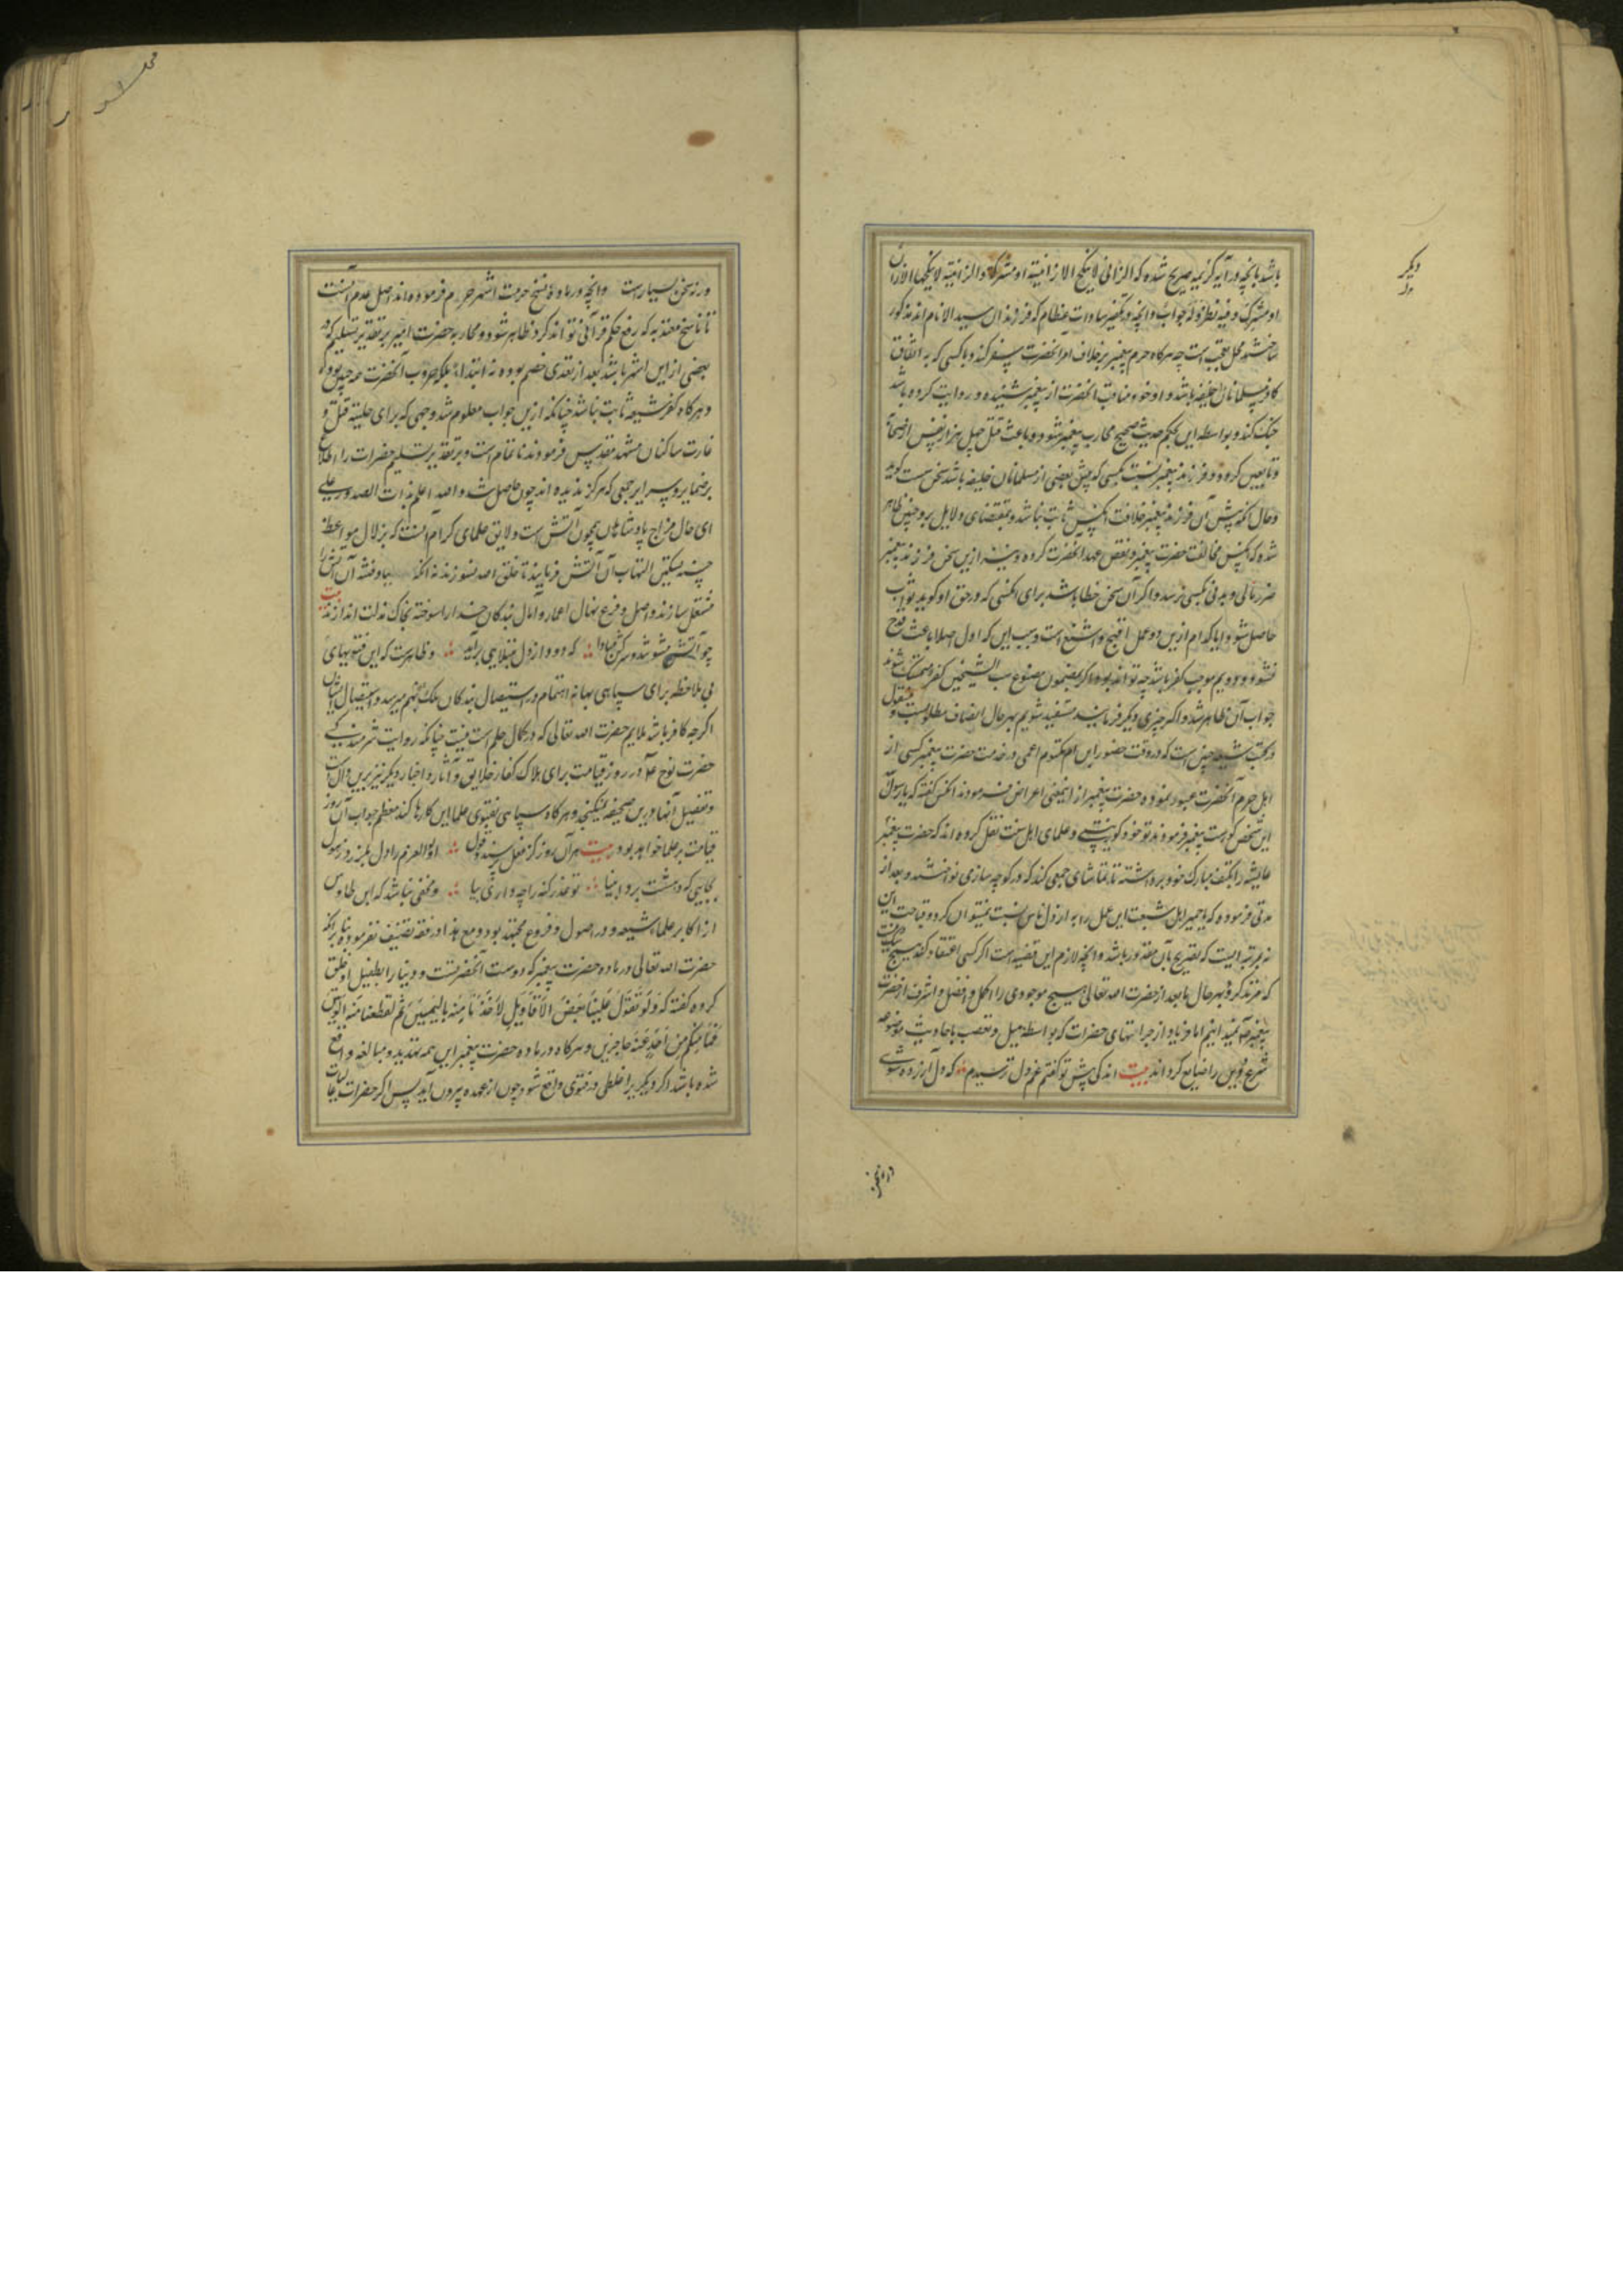 باشد بآنچه در آیه کریمه صریح شده که الزانی لا ینکح الا زانیة او مشرکة والزانیة لا ینکحها الا زان
او مشرک و فیه نظر و له جواب و آنچه در تکفیر سادات عظام که فرزندان سید الانام اند مذکور
ساخته‌اند محل تعجب است چه هرگاه حرم پیغمبر بر خلاف امر آنحضرت سفر کند و با کسی که به اتفاق
کافه مسلمانان خلیفه باشد و او خود مناقب آنحضرت از پیغمبر شنیده و روایت کرده باشد
جنگ کند و بواسطه این بحکم حدیث صحیح محارب پیغمبر شود و باعث قتل چهل هزار نفس از صحابه
و تابعین گردد و فرزند پیغمبر نسبت بکسی که پیش بعضی از مسلمانان خلیفه باشد سخن سست گوید
و حال آنکه پیش آن فرزند پیغمبر خلافت آنکس ثابت نباشد و بمقتضای دلایل بر او چنین ظاهر
شده که آنکس مخالفت حضرت پیغمبر و نقض عهد آنحضرت کرده و نیز ازین سخن فرزند پیغمبر
ضرر مالی و بدنی بکسی نرسد و اگر آن سخن خطا باشد برای آنکسی که در حق او گوید ثواب
حاصل شود آیا کدام ازین دو عمل اقبح و اشنع است و سبب این که اول اصلا باعث قدح
نشود و دویم موجب کفر باشد چه تواند بود و اگر بمضمون مصنوع سب الشیخین کفر متمسک شوند
جواب آن ظاهر شد و اگر چیزی دیگر فرمایند مستفید شویم بهر حال انصاف مطلوبست و منقول
در کتب شیعه چنین است که در وقت حضور ابن ام مکتوم اعمی در خدمت حضرت پیغمبر کسی از
اهل حرم آنحضرت عبور نموده حضرت پیغمبر از اینمعنی اعراض فرمودند آنکس گفته که یا رسول الله
این شخص کورست پیغمبر فرمودند تو خود کور نیستی و علمای اهل سنت نقل کرده اند که حضرت پیغمبر
عایشه را بکتف مبارک خود برداشته تا تماشای جمعی کند که در کوچه سازی نواختند و بعد از
مدتی فرموده که یا حمیرا اهل شبعت این عمل را به ارذل ناس نسبت نمیتوان کرد و قباحت این
نه بمرتبه ایست که تصریح بآن مقدور باشد و آنچه لازم این قضیه است اگر کسی اعتقاد کند هیچ شک نیست
که مرتد گردد بهر حال ما بعد از حضرت الله تعالی هیچ موجودی را اکمل و افضل و اشرف از حضرت
پیغمبر نمیدانیم اما فریاد از جراتهای حضرات که بواسطه میل و تعصب باحادیث موضوعه
شرع مبین را ضایع کرده اند بیت اندکی پیش تو گفتم غم دل ترسیدم که دل آزرده شوی
ورنه سخن بسیارست و آنچه در ماده نسخ حرمت اشهر حرم فرموده اند اصل عدم آنست
تا ناسخ معتد به که رفع حکم قرآنی تواند کرد ظاهر شود و محاربه حضرت امیر بر تقدیر تسلیم که در
بعضی از این اشهر باشد بعد از تعدی خصم بوده نه ابتداء بلکه حروب آنحضرت همه چنین بوده
و هرگاه کفر شیعه ثابت نباشد چنانکه ازین جواب معلوم شد وجهی که برای حلیت قتل و
غارت ساکنان مشهد مقدس فرمودند ناتمام است و بر تقدیر تسلیم حضرات را اطلاع
بر ضمایر و سرایر جمعی که هرگز ندیده اند چون حاصل شد و الله اعلم بذات الصدور بلی
ای حال مزاج پادشاهان همچون آتش است و لایق علمای کرام آنست که بزلال مواعظ
حسنه تسکین التهاب آن آتش فرمایند تا خلق الله نسوزند نه آنکه بباد فتنه آن آتش را
مشتعل سازند و اصل و فرع نهال اعمار و آمال بندگان خدا را سوخته بخاک مذلت اندازند بیت
چو آتش مشو تند و سرکش مبادا که دود از دل مبتلایی برآید و ظاهرست که این فتویهای
بی ملاحظه برای سپاهی بهانه اهتمام در استیصال بندگان ملک بهم میرسد و استیصال ایشان
اگرچه کافر باشد ملایم حضرت الله تعالی که در کمال حلم است نیست چنانکه روایت شرمندگی
حضرت نوح ع در روز قیامت برای هلاک کفار خلایق و آثار و اخبار دیگر نیز برین دال است
و تفصیل آنها درین صحیفه نمیگنجد و هرگاه سپاهی بفتوی علما این کارها کند معظم جواب آن روز
قیامت بر علما خواهد بود بیت در آن روز کز فعل پرسند و قول اولوالعزم را دل بلرزد ز هول
بجایی که دهشت برد انبیا تو عذر گنه را چه داری بیا و مخفی نباشد که ابن طاوس
از اکابر علما شیعه و در اصول و فروع مجتهد بود و مع هذا در فقه تصنیف نفرموده بنا بر آنکه
حضرت الله تعالی در ماده حضرت پیغمبر که دوست آنحضرتست و دنیا را بطفیل او خلق
کرده گفته که وَلَو تَقَوَّلَ عَلَینا بَعضَ الاَقاویل لَاَخَذنا مِنهُ بِالیَمین ثُمَّ لَقَطَعنا مِنهُ الوَتین
فَما مِنکُم مِن اَحَدٍ عَنهُ حاجزین و هرگاه در ماده حضرت پیغمبر این همه تهدید و مبالغه واقع
شده باشد اگر دیگریرا غلطی در فتوی واقع شود چون از عهده بیرون آید پس اگر حضرات